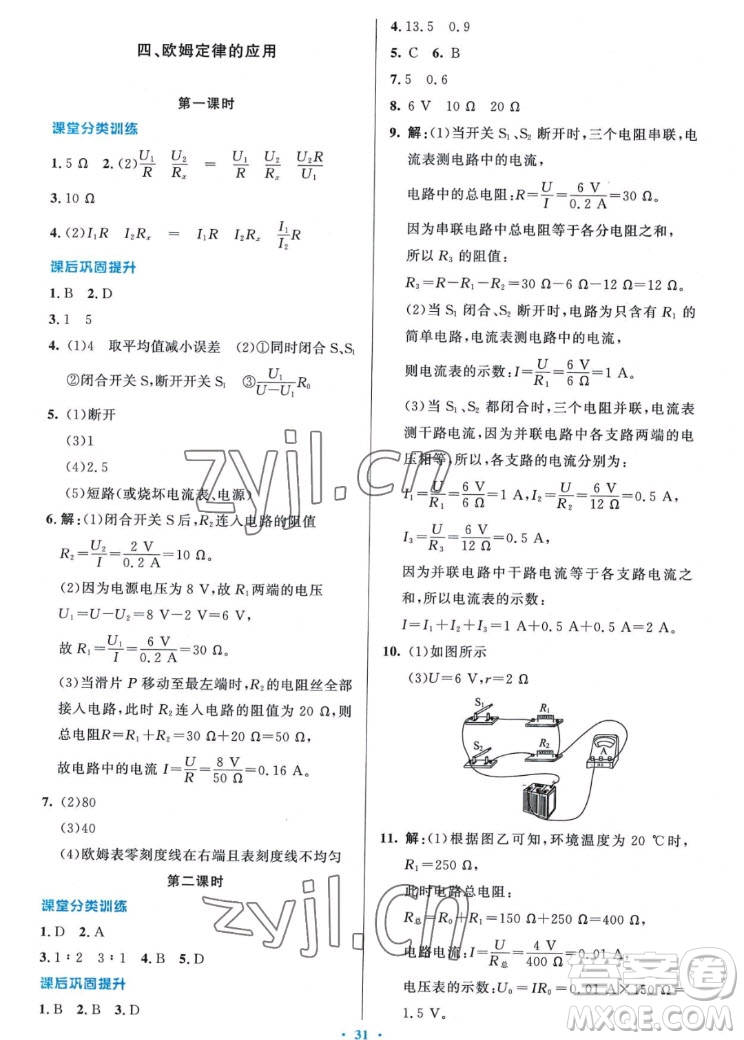 四、欧姆定律的应用
第一课时
课堂分类训练
1. 5 Ω  2. (2) U₁/R  U₂/Rₓ  =  U₁/R  U₂/Rₓ  U₂R/U₁
3. 10 Ω
4. (2) I₁R  I₂Rₓ  =  I₁R  I₂Rₓ  I₁/I₂ R
课后巩固提升
1. B  2. D
3. 1  5
4. (1)4  取平均值减小误差  (2)①同时闭合 S、S₁
②闭合开关 S,断开开关 S₁  ③ U₁/(U−U₁) R₀
5. (1)断开
(3)1
(4)2.5
(5)短路(或烧坏电流表、电源)
6. 解:(1)闭合开关 S 后,R₂连入电路的阻值
R₂=U₂/I=2 V/0.2 A=10 Ω。
(2)因为电源电压为 8 V,故 R₁两端的电压
U₁=U−U₂=8 V−2 V=6 V,
故 R₁=U₁/I=6 V/0.2 A=30 Ω。
(3)当滑片 P 移动至最左端时,R₂的电阻丝全部
接入电路,此时 R₂连入电路的阻值为 20 Ω,则
总电阻 R=R₁+R₂=30 Ω+20 Ω=50 Ω,
故电路中的电流 I=U/R=8 V/50 Ω=0.16 A。
7. (2)80
(3)40
(4)欧姆表零刻度线在右端且表刻度线不均匀
第二课时
课堂分类训练
1. D  2. A
3. 1∶2  3∶1  4. B  5. D
课后巩固提升
1. B  2. B  3. D
4. 13.5  0.9
5. C  6. B
7. 5  0.6
8. 6 V  10 Ω  20 Ω
9. 解:(1)当开关 S₁、S₂ 断开时,三个电阻串联,电
流表测电路中的电流,
电路中的总电阻:R=U/I=6 V/0.2 A=30 Ω,
因为串联电路中总电阻等于各分电阻之和,
所以 R₃ 的阻值:
R₃=R−R₁−R₂=30 Ω−6 Ω−12 Ω=12 Ω。
(2)当 S₁ 闭合、S₂ 断开时,电路为只含有 R₁ 的
简单电路,电流表测电路中的电流,
则电流表的示数:I=U/R₁=6 V/6 Ω=1 A。
(3)当 S₁、S₂ 都闭合时,三个电阻并联,电流表
测干路电流,因为并联电路中各支路两端的电
压相等,所以通过各支路的电流分别为:
I₁=U/R₁=6 V/6 Ω=1 A,I₂=U/R₂=6 V/12 Ω=0.5 A,
I₃=U/R₃=6 V/12 Ω=0.5 A,
因为并联电路中干路电流等于各支路电流之
和,所以电流表的示数:
I=I₁+I₂+I₃=1 A+0.5 A+0.5 A=2 A。
10. (1)如图所示
(3)U=6 V,r=2 Ω
S₁  R₁
S₂  R₂  A
11. 解:(1)根据图乙可知,环境温度为 20 ℃时,
R₁=250 Ω,
此时电路总电阻:
R总=R₀+R₁=150 Ω+250 Ω=400 Ω,
电路电流:I=U/R总=4 V/400 Ω=0.01 A,
电压表的示数:U₀=IR₀=0.01 A×150 Ω=
1.5 V。
· 31 ·
zyjl.cn
zyjl.cn
答案圈
MXQE.COM